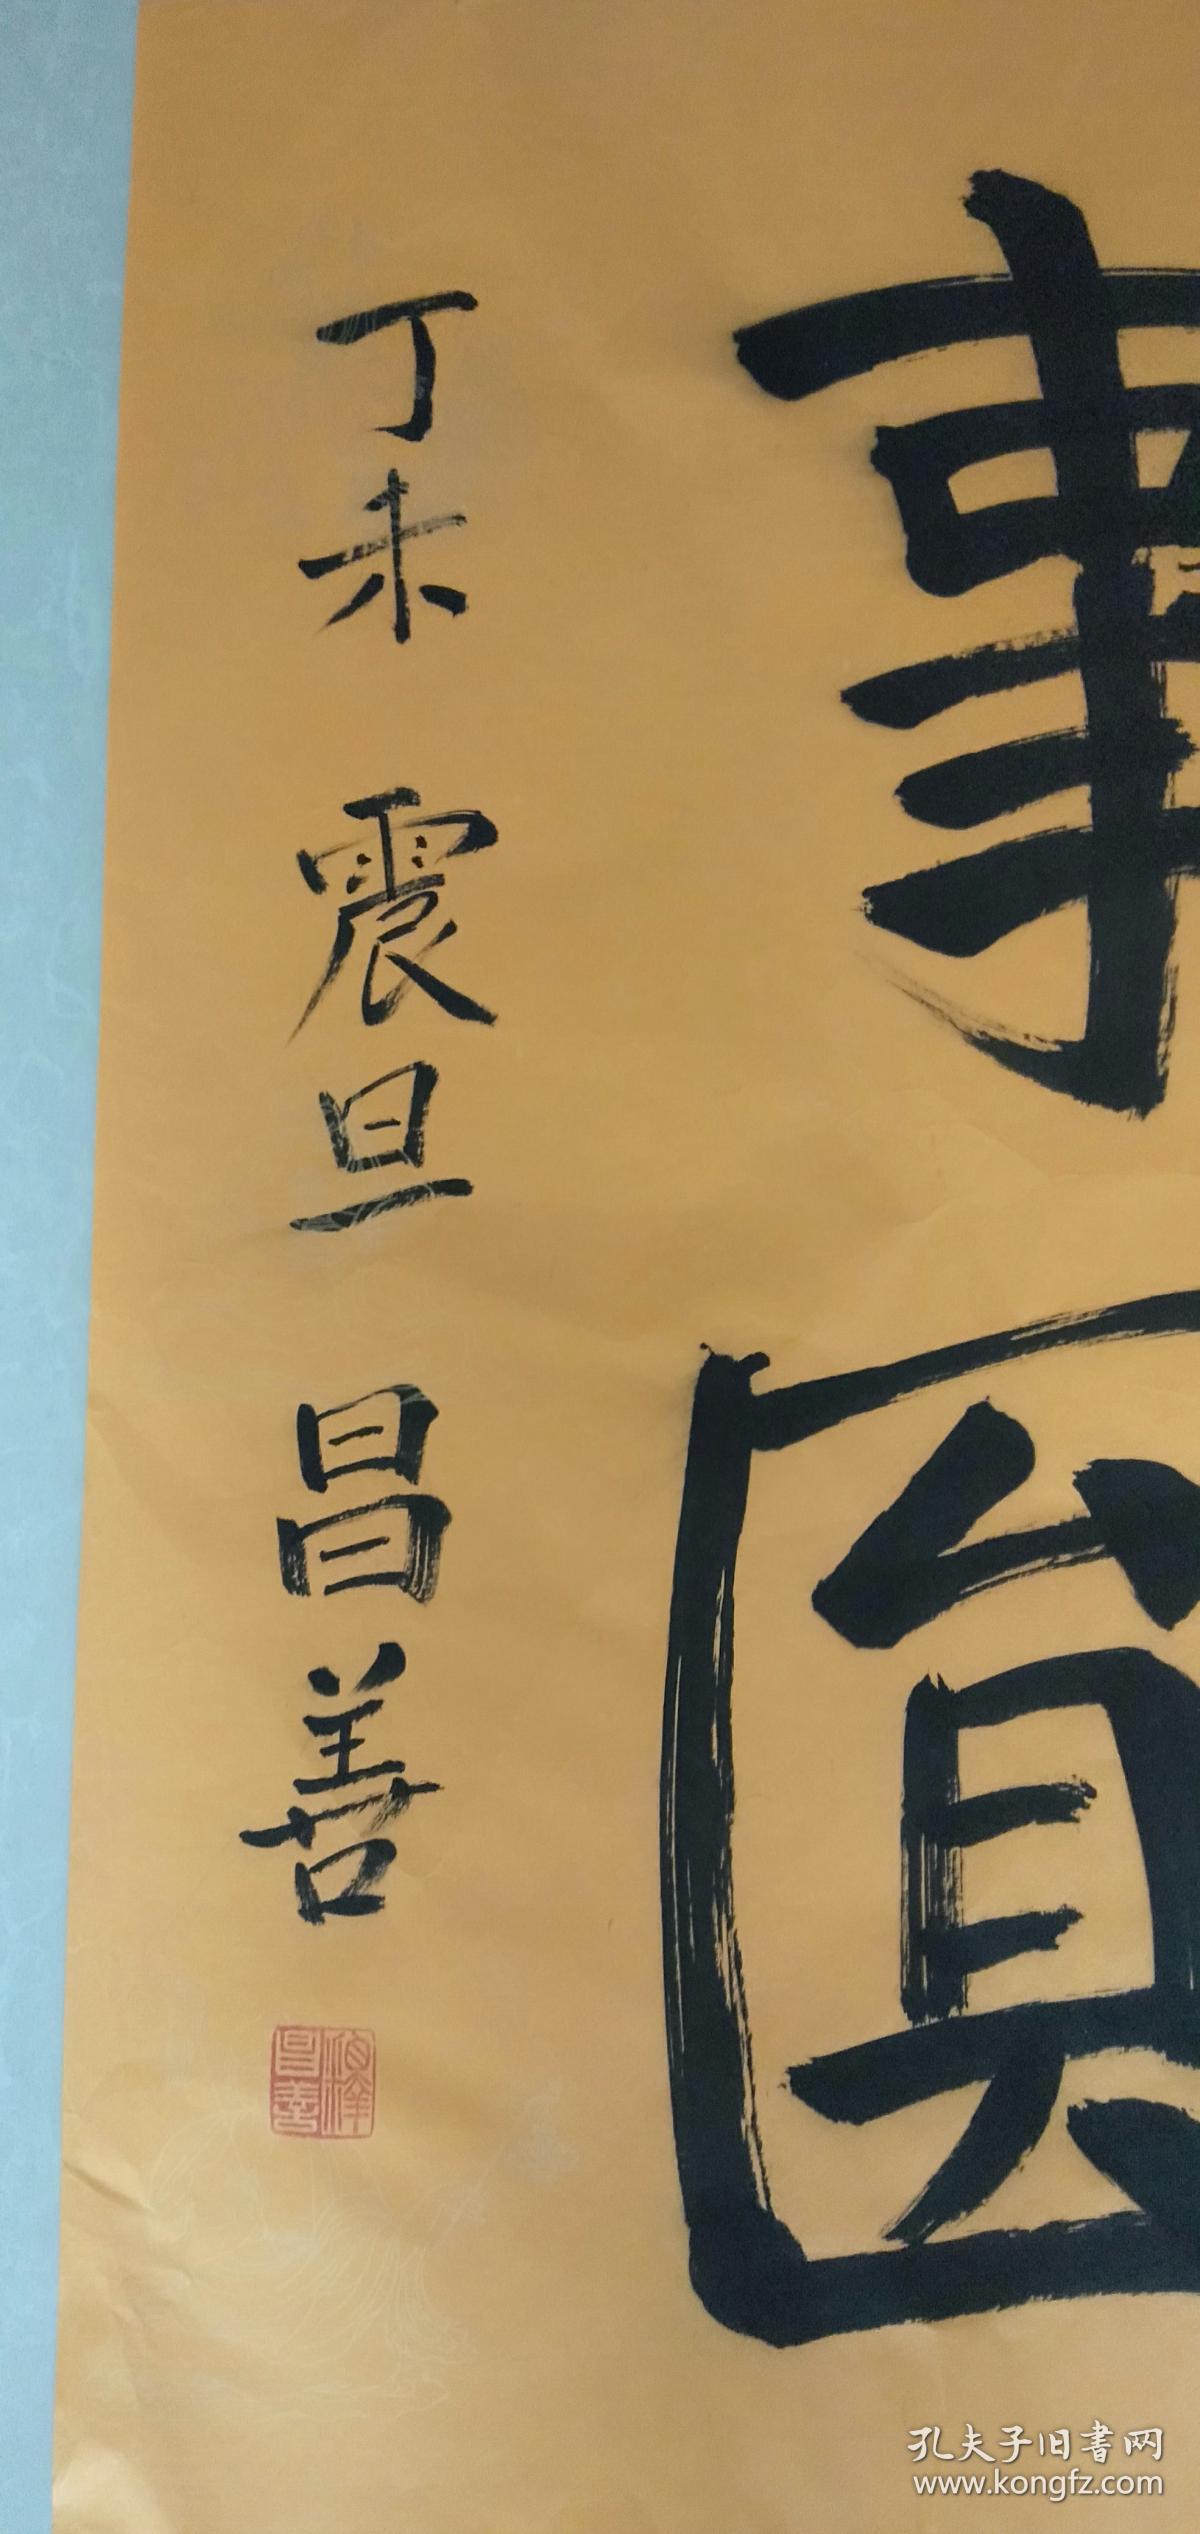 事圓
丁未 震旦 昌善
孔夫子旧書网
www.kongfz.com